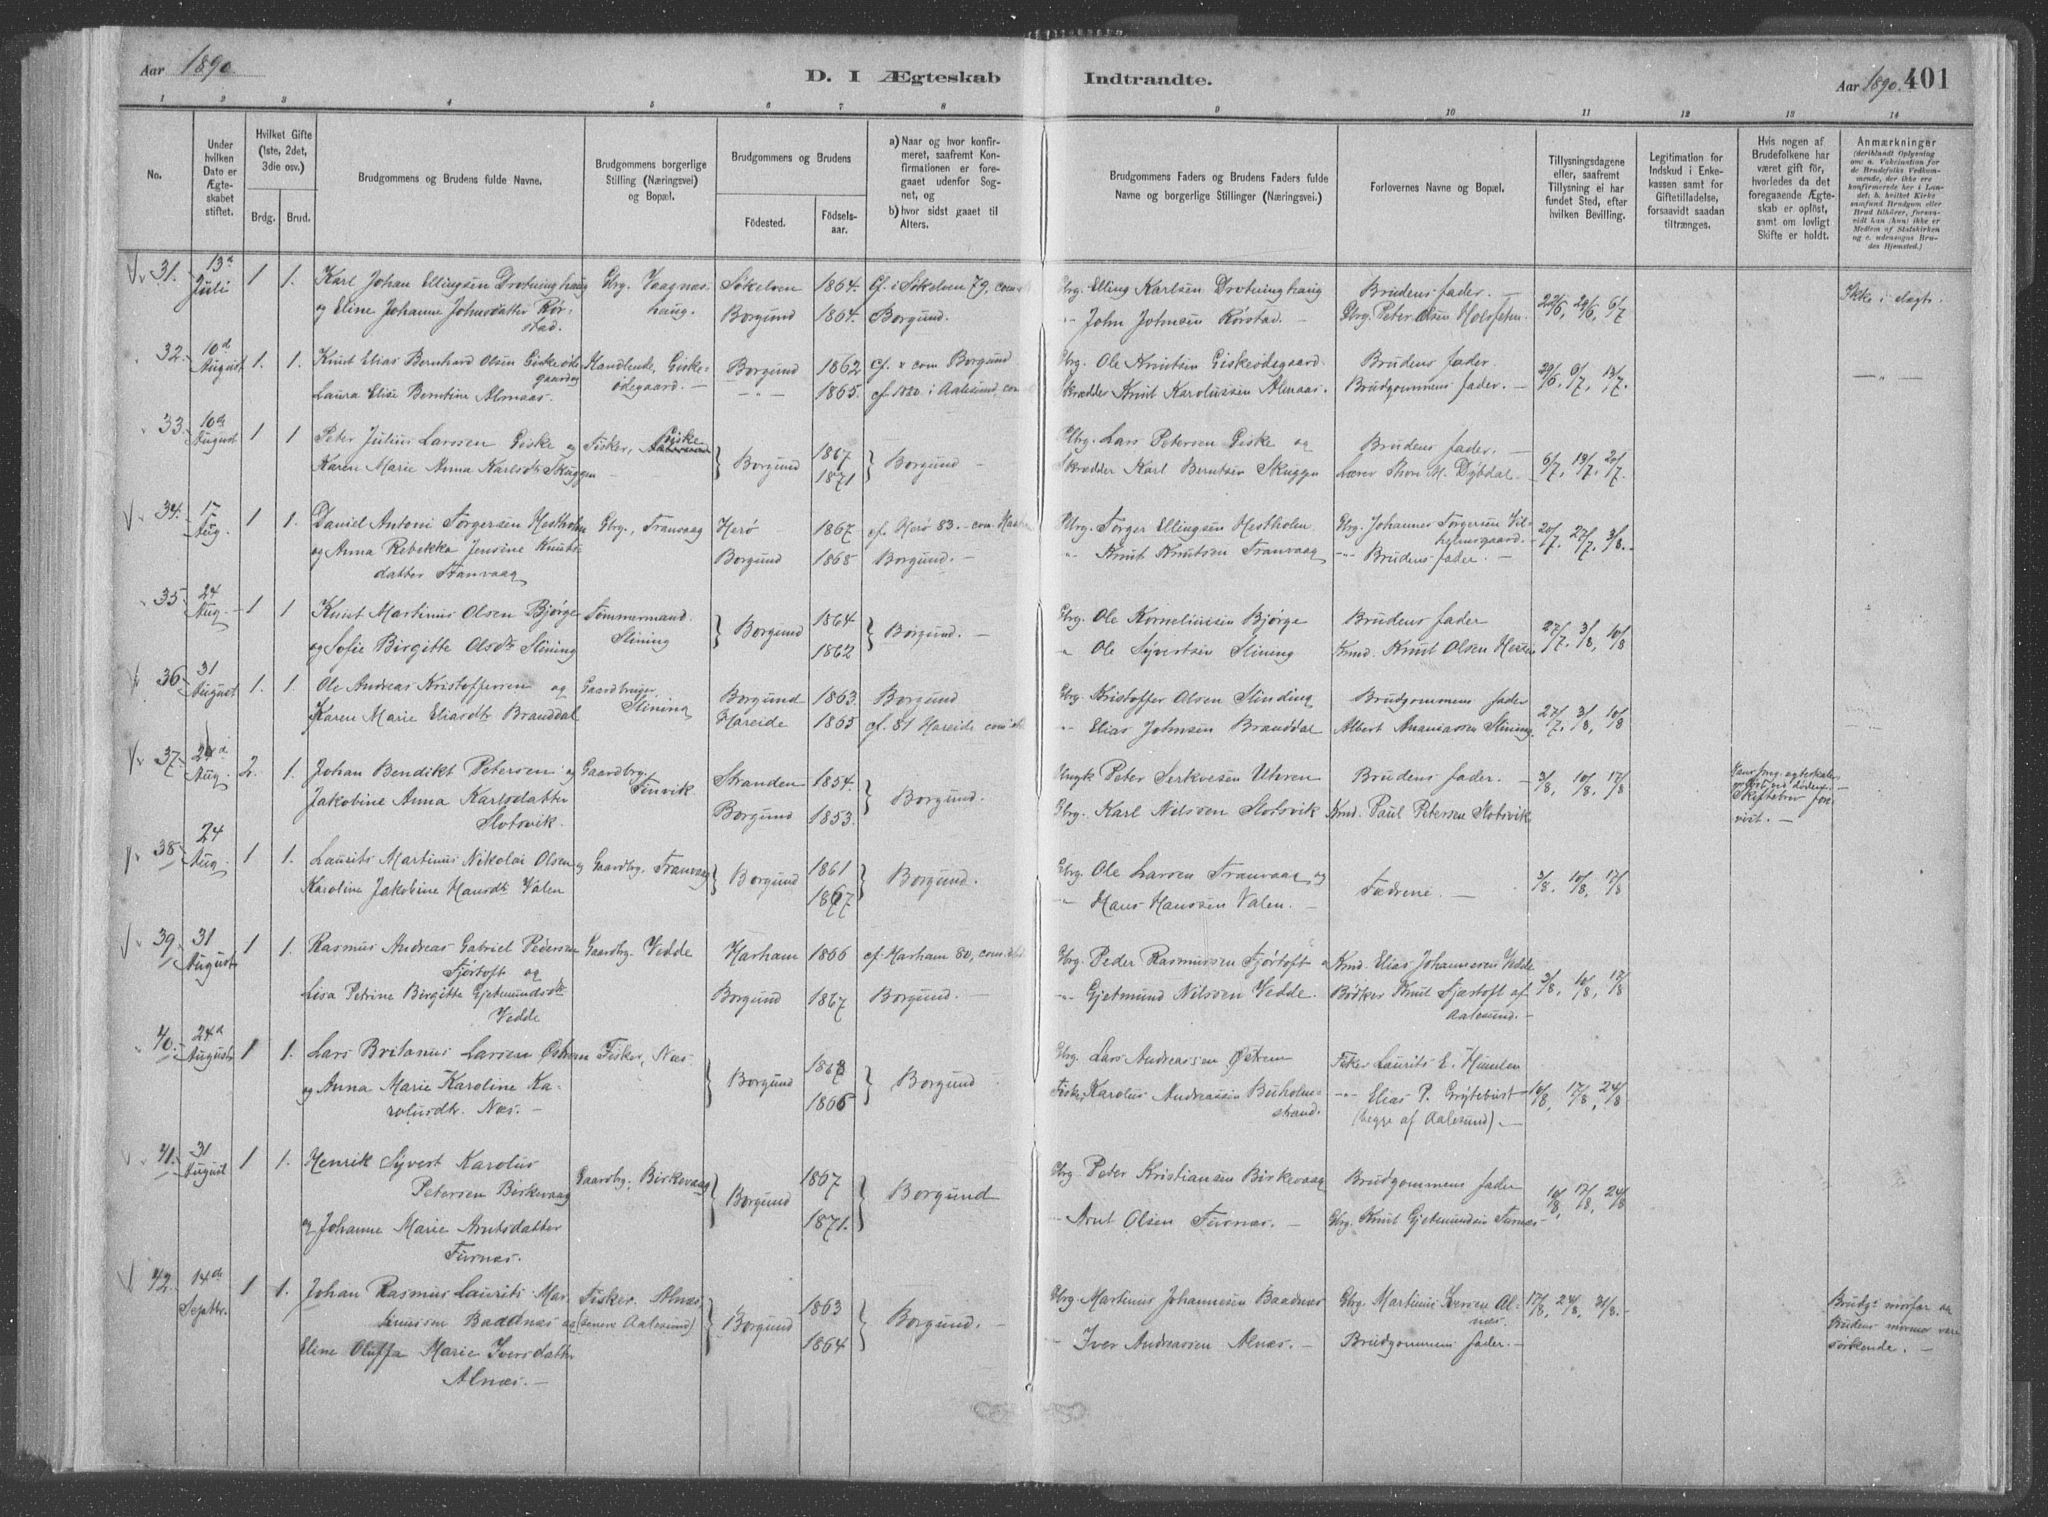 Aar 1890
D. I Ægteskab Indtraadte.
Aar 1890. 401
1 2 3 4 5 6 7 8 9 10 11 12 13 14
No.
Under hvilken Dato er Ægteskabet stiftet.
Hvilket Gifte (1ste, 2det, 3die osv.)
Brdg. Brud.
Brudgommens og Brudens fulde Navne.
Brudgommens borgerlige Stilling (Næringsvei) og Bopæl.
Brudgommens og Brudens
Fødested. Fødselsaar.
a) Naar og hvor konfirmeret, saafremt Konfirmationen er foregaaet udenfor Sognet, og
b) hvor sidst gaaet til Alters.
Brudgommens Faders og Brudens Faders fulde Navne og borgerlige Stillinger (Næringsvei.)
Forlovernes Navne og Bopæl.
Tillysningsdagene eller, saafremt Tillysning ei har fundet Sted, efter hvilken Bevilling.
Legitimation for Indskud i Enkekassen samt for Giftetilladelse, forsaavidt saadan tiltrænges.
Hvis nogen af Brudefolkene har været gift, hvorledes da det foregaaende Ægteskab er opløst, samt om lovligt Skifte er holdt.
Anmærkninger
31. 13de Juli 1 1. Karl Johan Ellingsen Drotninghaug Gbrg. Vaagneshaug. Søkelven 1864. Cf. i Søkelven 79, Gbrg. Elling Karlsen Drotninghaug Brudens fader. 22/6, 29/6, 6/7 Ikke i slegt.
og Eline Johanne Johnsdatter Rørstad. Borgund 1864. Borgund. " John Johnsen Rørstad. Gbrg. Peter Olsen Holsfeten.
32. 10d August 1. 1. Knut Elias Bernhard Olsen Giskeødegaard og Handlende, Giskeødegaard. Borgund 1862 cf. & com Borgund Gbrg. Ole Knutsen Giskeødegaard. Brudens fader 29/6, 6/7, 13/7. — " —
Laura Elise Berntine Almaas. — " — 1865. cf. 1880 i Aalesund, Skrædder Knut Karolussen Almaas. Brudgommens fader.
33. 10d August 1 1 Peter Julius Larssen Giske og Fisker, Giske Borgund 1867 Borgund Gbrg. Lars Petersen Giske og Brudens fader. 6/7, 13/7, 20/7.
Karen Marie Anna Karlsdtr Skuggen 1871 Skrædder Karl Berntsen Skuggen Lærer Thore M. Dybdal.
34. 17 Aug. 1 1. Daniel Antoni Torgersen Hestholm Gbrg., Tranvaag Herø 1867 cf. Herø 83. Gbrg. Torger Ellingsen Hestholm Gbrg. Johannes Torgersen 20/7, 27/7, 3/8.
og Anna Rebekka Jensine Knutsdatter Tranvaag Borgund 1868 Borgund. " Knut Knutsen Tranvaag Brudens fader.
35. 24 Aug. 1 1 Knut Martinus Olsen Bjørge Tømmermand. Slining Borgund 1864 Borgund. Gbrg. Ole Korneliussen Bjørge Brudens fader 27/7, 3/8, 10/8
og Sofie Birgitte Olsdtr Slining 1862 " Ole Syvertsen Slining Knud Olsen Hessen
36 31 August 1. 1. Ole Andreas Kristoffersen og Gaardbruger. Slining Borgund 1863. Borgund Gbrg. Kristoffer Olsen Slinding Brudgommens fader 27/7, 3/8, 10/8
Karen Marie Eliasdtr Branddal Hareide 1865 cf. 81 Hareide " Elias Johnsen Branddal Albert Ananiassen Slining
37. 24d Aug. 2. 1. Johan Bendikt Petersen og Gaardbrg. Stranden 1854. Borgund. Peter Brudens fader. 3/8, 10/8, 17/8
Jakobine Anna Karlsdatter Slotsvik. Borgund 1853. Gbrg. Karl Nilssen Slotsvik Kmd. Paul Petersen Slotsvik
38. 24 Aug. 1 1. Laurits Martinus Nikolai Olsen og Gaardbrg. Tranvaag Borgund 1861 Borgund. Gbrg. Ole Larsen Tranvaag og Fædrene. 3/8, 10/8, 17/8
Karoline Jakobine Hansdtr Valen 1867 " Hans Hanssen Valen.
39. 31 August 1 1. Rasmus Andreas Gabriel Pedersen Fjørtoft og Gaardbrg. Vedde Harham 1866 cf. Harham 80, Gbrg. Peder Rasmussen Fjørtoft og Kmd. Elias Johannesen Vedde 3/8, 10/8, 17/8
Lisa Petrine Birgitte Gjetmundsdtr Vedde Borgund 1867 Borgund. " Gjetmund Nilssen Vedde. Bødker Knut Fjærtoft af Aalesund.
40. 24d August 1 1. Lars Britanus Larsen Østrem Fisker, Næs Borgund 1868 Borgund Gbrg. Lars Andreassen Østrem Fisker Laurits E. Humlen 10/8, 17/8, 24/8
og Anna Marie Karoline Karolusdtr. Næs. 1866 Fisker Karolus Andreassen Buholmstrand. " Elias P. Grytebust (begge af Aalesund).
41. 31 August 1 1. Henrik Syvert Karolus Petersen Birkevaag Gaardbrg. Birkevaag Borgund 1867 Borgund Gbrg. Peter Kristiansen Birkevaag Brudgommens fader 10/8, 17/8, 24/8
og Johanne Marie Arntsdatter Furnæs. 1871. Arnt Olsen Furnæs. Gbrg. Knut Gjetmundsen Furnæs
42. 14de Septbr. 1 1. Johan Rasmus Laurits Martinussen Baadnæs og Fisker. Alnæs (senere Aalesund) Borgund 1863 Borgund. Gbrg. Martinus Johannesen Baadnæs Gbrg. Martinus Iversen Alnæs. 17/8, 24/8, 31/8. Brudg: morfar og Brudens mormor vare søskende.
Eline Oluffa Marie Iversdatter Alnæs. 1864 Iver Andreassen Alnæs. Brudgommens fader.